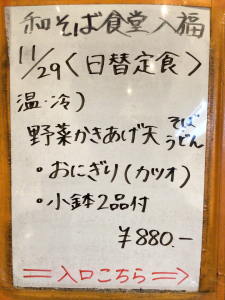 和そば食堂 入福
11/29〈日替定食〉
温・冷)
野菜かきあげ天 そば うどん
・おにぎり(カツオ)
・小鉢2品付
¥880.-
⇒入口こちら⇒